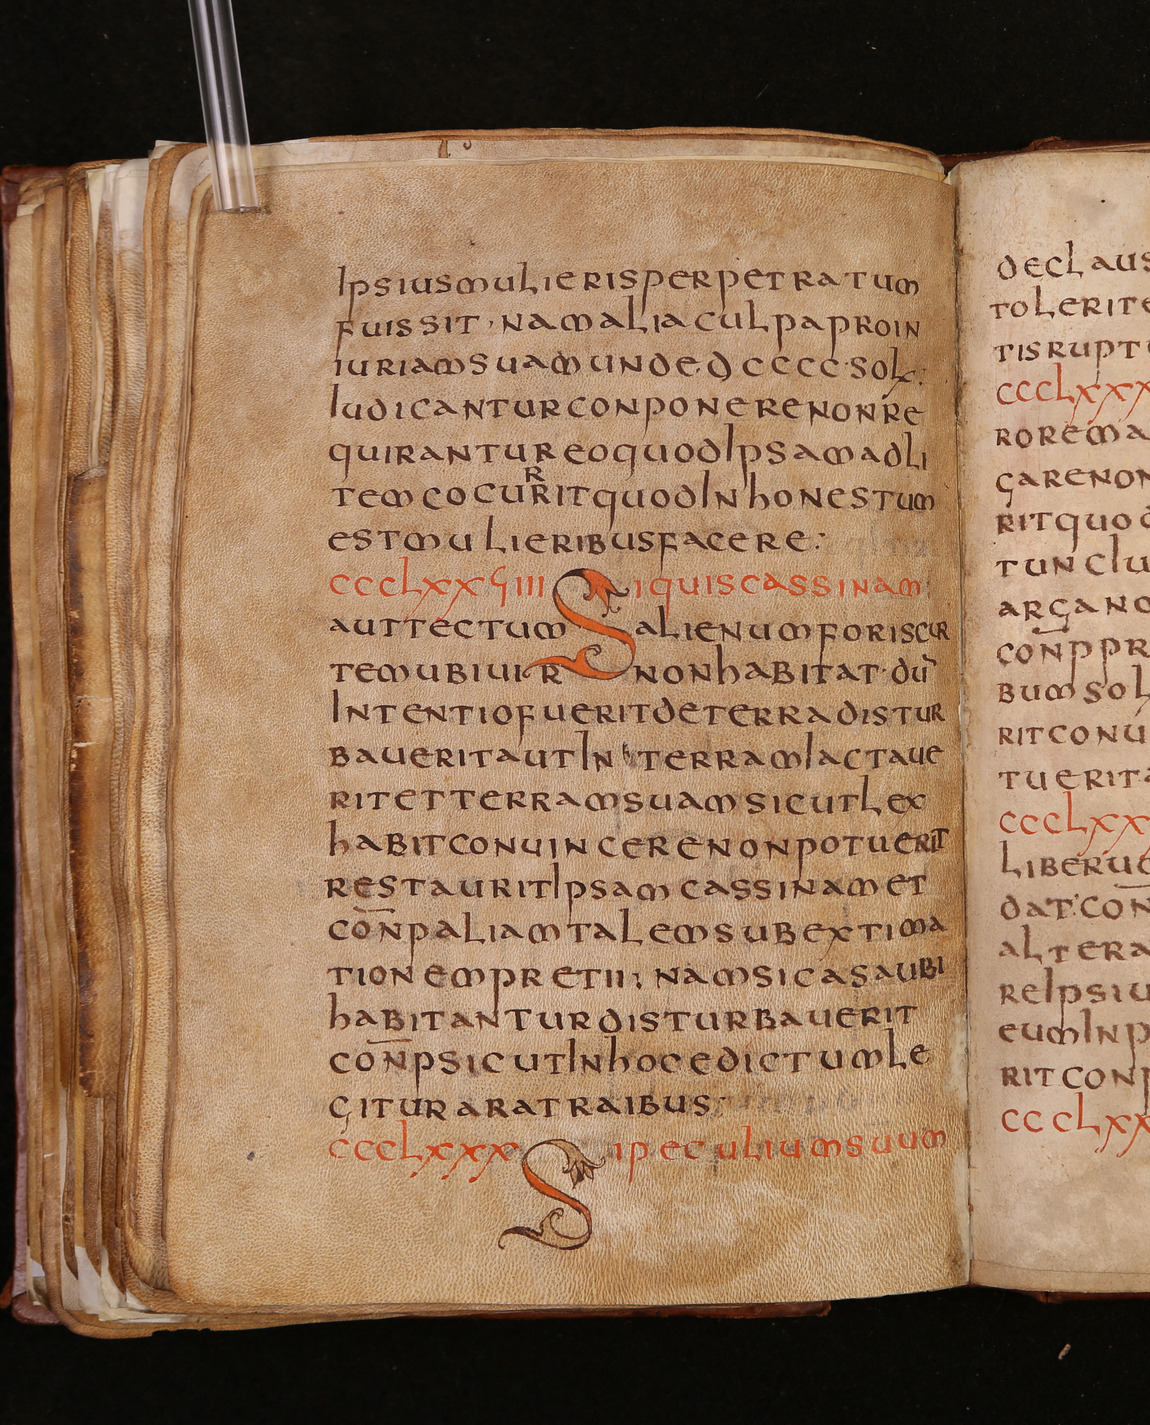 Ipsius mulieris perpetratum
fuissit, nam alia culpa pro in
iuriam suam unde · d cccc · sol:
Iudicantur conponere non re
quirantur eo quod Ipsam ad li
R
tem cocurrit quod In honestum
est mulieribus facere:
ccclxxϛiii Si quis cassinam
aut tectum alienum foris cur
tem ubi uir non habitat · dū
Intentio fuerit de terra distur
bauerit aut In terram Iactaue
rit et terram suam sicut lex
habit conuincere non potuerit
restaurit Ipsam cassinam et
con̄p aliam talem sub extima
tionem pretii; nam si casa ubi
habitantur disturbauerit
con̄p sicut In hoc edictum le
gitur arat raibus:
ccclxxx Si peculium suum
declaus
tolerit
tis rupt
ccclxxx
rorema
garenon
rit quo
tun clu
argano
con̄p pr
bum sol
rit conu
tuerit
ccclxx
liberu
dat: con
altera
re Ipsiu
eum In p
rit conp
ccclxx